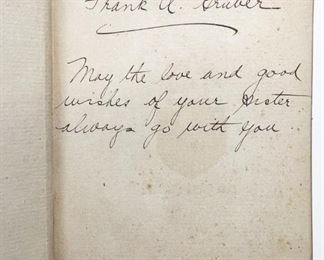 Frank A. Gruber
May the love and good
wishes of your sister
always go with you